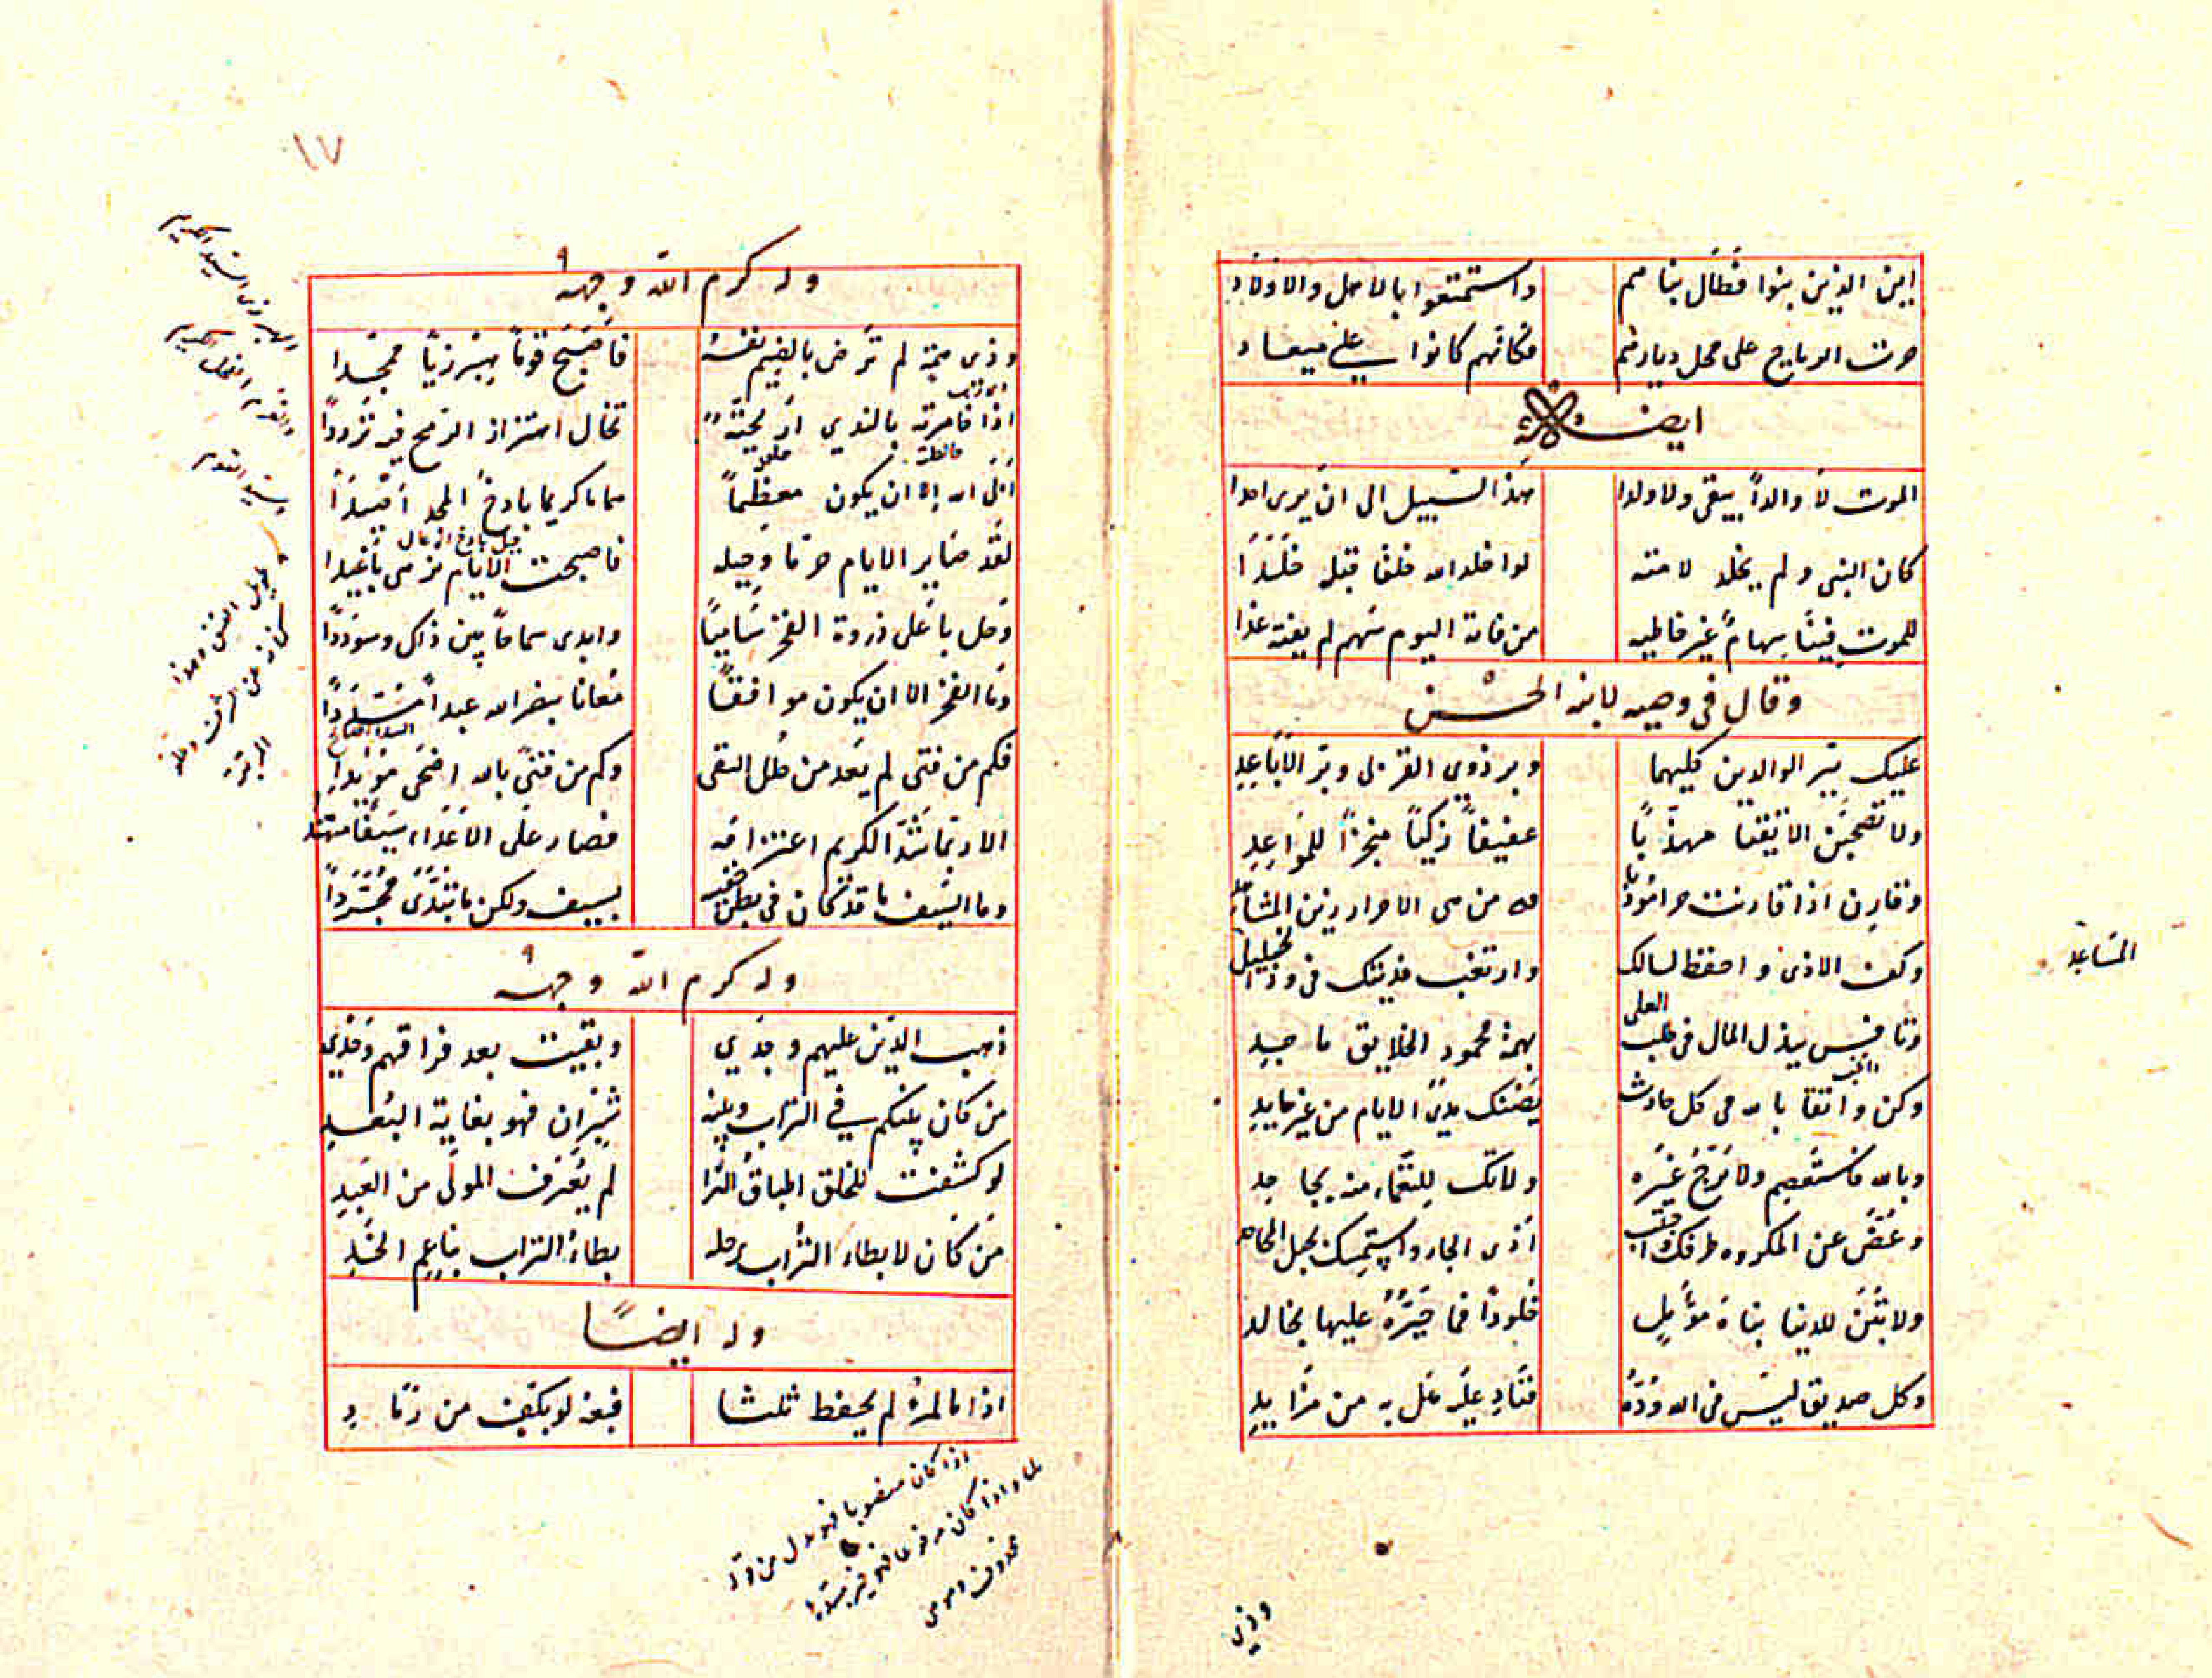 اين الذين بنوا فطال بناهم واستمتعوا بالاهل والاولاد
جرت الرياح على محل ديارهم فكانهم كانوا على ميعاد
ايضا له
الموت لا والداً يبقى ولا ولدا هذا السبيل الى ان يرى احدا
كان النبى ولم يخلد لامته لو اخلد الله خلقا قبله خلدا
للموت فينا سهامٌ غير خاطيه من فاته اليوم سهم لم يفته غدا
وقال فى وصيه لابنه الحسن
عليك ببر الوالدين كليهما وبر ذوي القربى وبر الاباعد
ولا تصحبن الا تقيا مهذباً عفيفاً زكياً منجزاً للمواعد
وقارن اذا قارنت حرا مؤدبا فتى من بنى الاحرار زين المشاهد
المساعد
وكف الاذى واحفظ لسانك وارتغب فديتك فى ود الخليل
ونافس ببذل المال فى طلب العلى بهمة محمود الخلايق ماجد
وكن واثقا بالله فى كل حادث يصنك مدى الايام من عين حاسد
وبالله فاستعصم ولا ترج غيره ولا تك للنعماء منه بجاحد
وغض عن المكروه طرفك واجتنب اذى الجار واستمسك بحبل المحامد
ولا تبن للدنيا بناء مؤمل خلودا فما حي عليها بخالد
وكل صديق ليس فى الله وده فناد عليه هل به من مزايد
وذى
١٧
وله كرم الله وجهه
وذى همة لم ترض بالضيم نفسه فاصبح قرماً هبرزيًا ممجدا
اذا خامرته بالندي اريحية تخال اهتزاز الرمح فيه ترددا
ابى الله الا ان يكون معظماً هماما كريما باذخ المجد اصيدا
لقد صاير الايام حزما وحيله فاصبحت الايام ترمى باغيدا
وحل باعلى ذروة الفخر ساميًا وابدى سماحاً بين ذاك وسوددا
وما الفخر الا ان يكون موافقًا معانا بنصر الله عبداً مسددا
فكم من فتى لم يعد من ظل التقى وكم من فتىً بالله اضحى مؤيدا
الا ربما شد الكريم اعتزامه فصار على الاعداء سيفا مهند
وما السيف ما قد كان فى بطن غمد بسيف ولكن ما تبدى مجردا
وله كرم الله وجهه
ذهب الذين عليهم وجدي وبقيت بعد فراقهم وحدي
من كان بينكم في التراب وبينه شبران فهو بغاية البعد
لو كشفت للخلق اطباق الثرا لم يعرف المولى من العبد
من كان لا يطاء التراب برجله يطاء التراب بناعم الخد
وله ايضًا
اذا ما المرء لم يحفظ ثلثا فبعه لو بكف من رماد
اذا كان منصوبا فهو بدل من